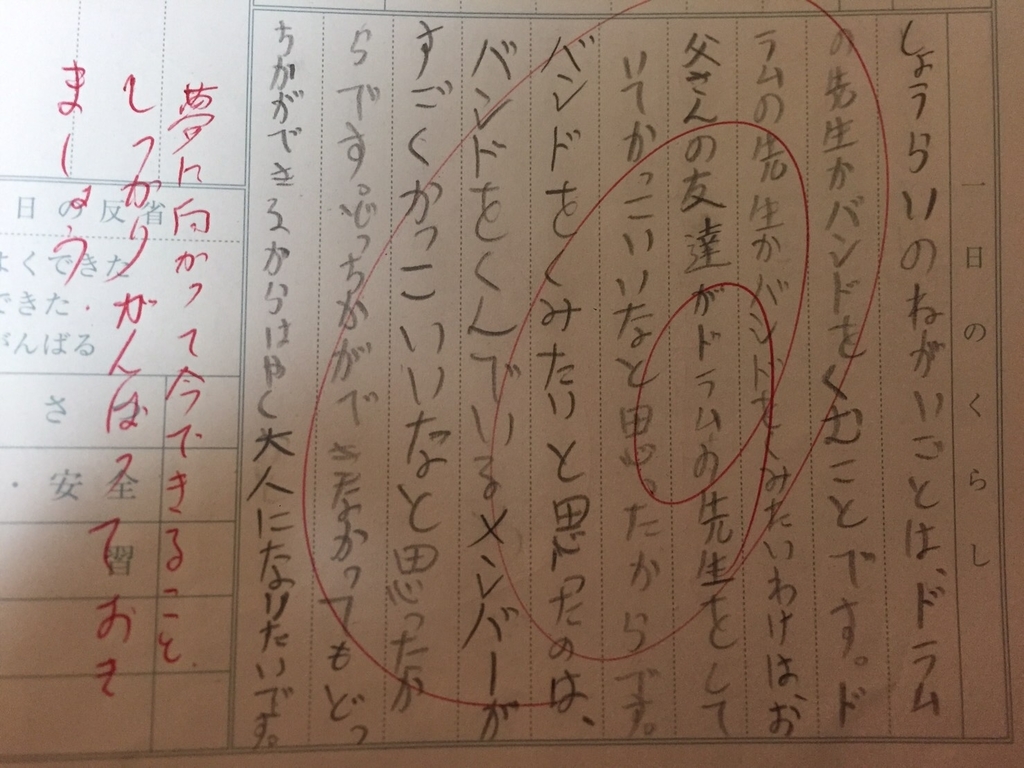 一日のくらし
しょうらいのねがいごとは、ドラム
の先生かバンドをくむことです。ド
ラムの先生かバンドをくみたいわけは、お
父さんの友達がドラムの先生をして
いてかっこいいなと思ったからです。
バンドをくみたいと思ったのは、
バンドをくんでいるメンバーが
すごくかっこいいなと思ったか
らです。どっちかができなかってもどっ
ちかができるからはやく大人になりたいです。
夢に向かって今できること
しっかりがんばっておき
ましょう
日の反省
よくできた
できた・
がんばる
さ
・安全
習